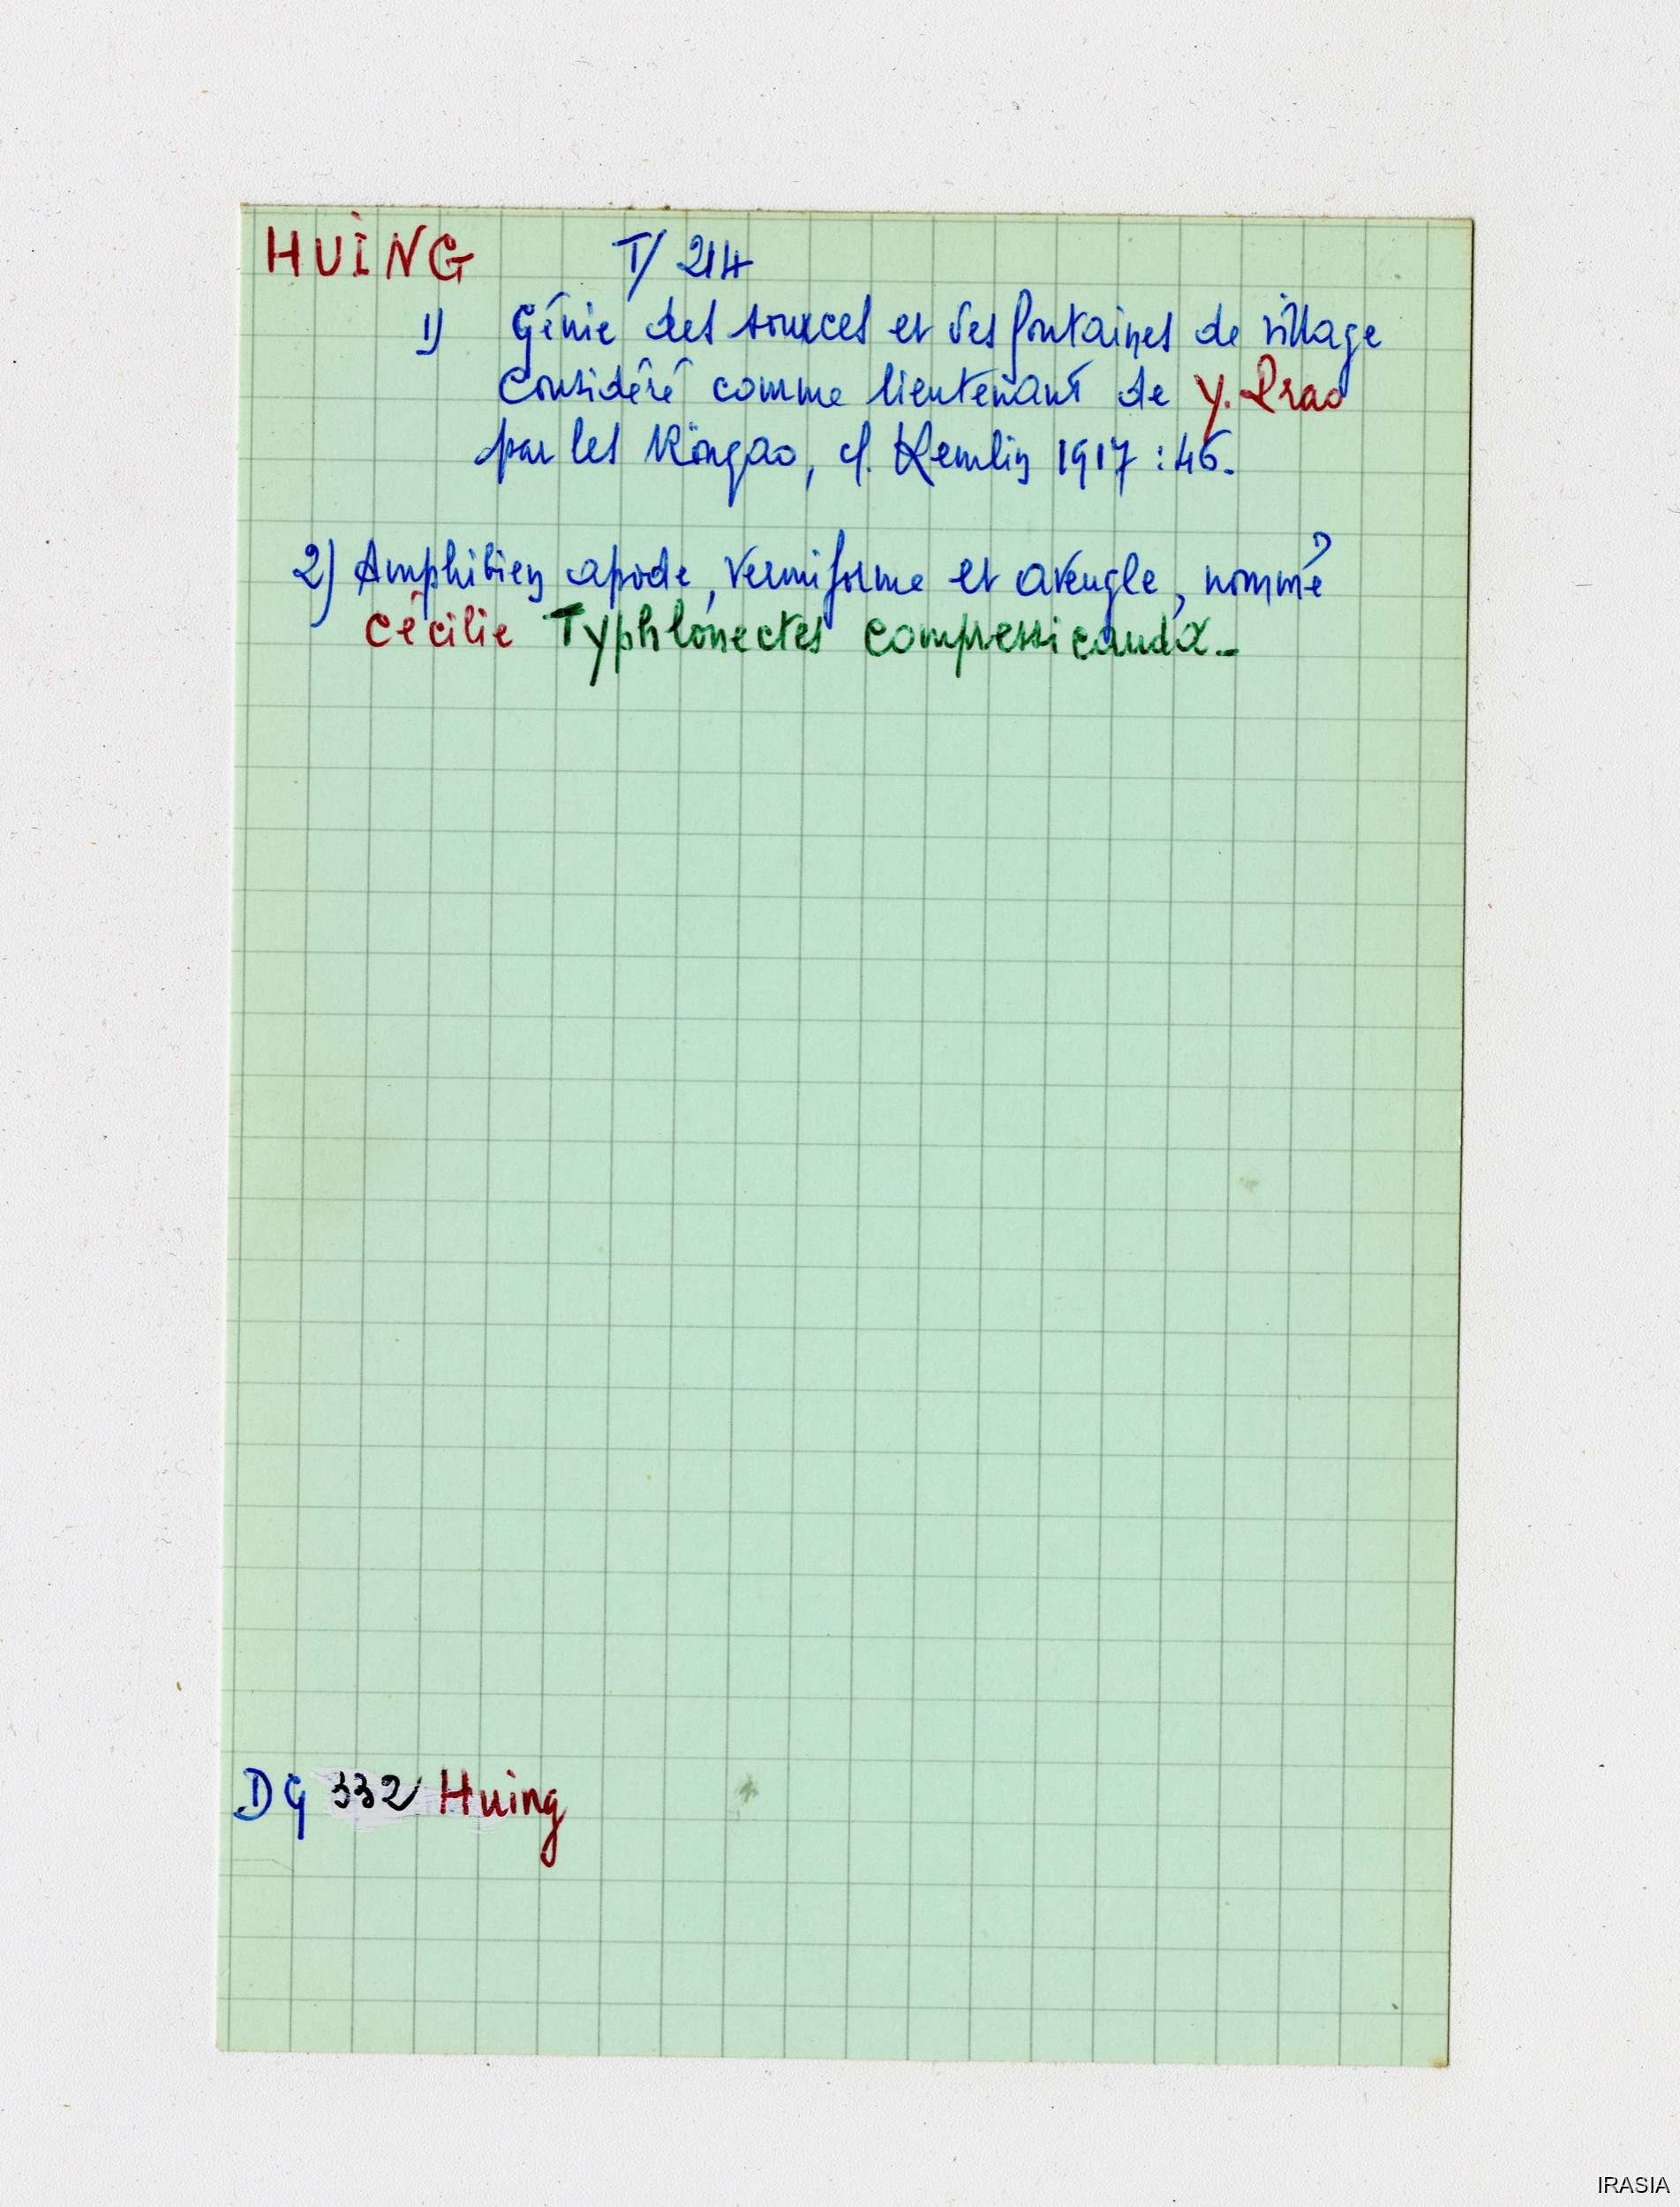 HUİNG T/ 214
1) Génie des sources et des fontaines de village
Considéré comme lieutenant de Y. Prao
par les Röngao, cf. Kemlin 1917 : 46.
2) Amphibien apode, vermiforme et aveugle, nommé ?
cécilie Typhlonectes compressicauda.
DG 332 Huing
IRASIA